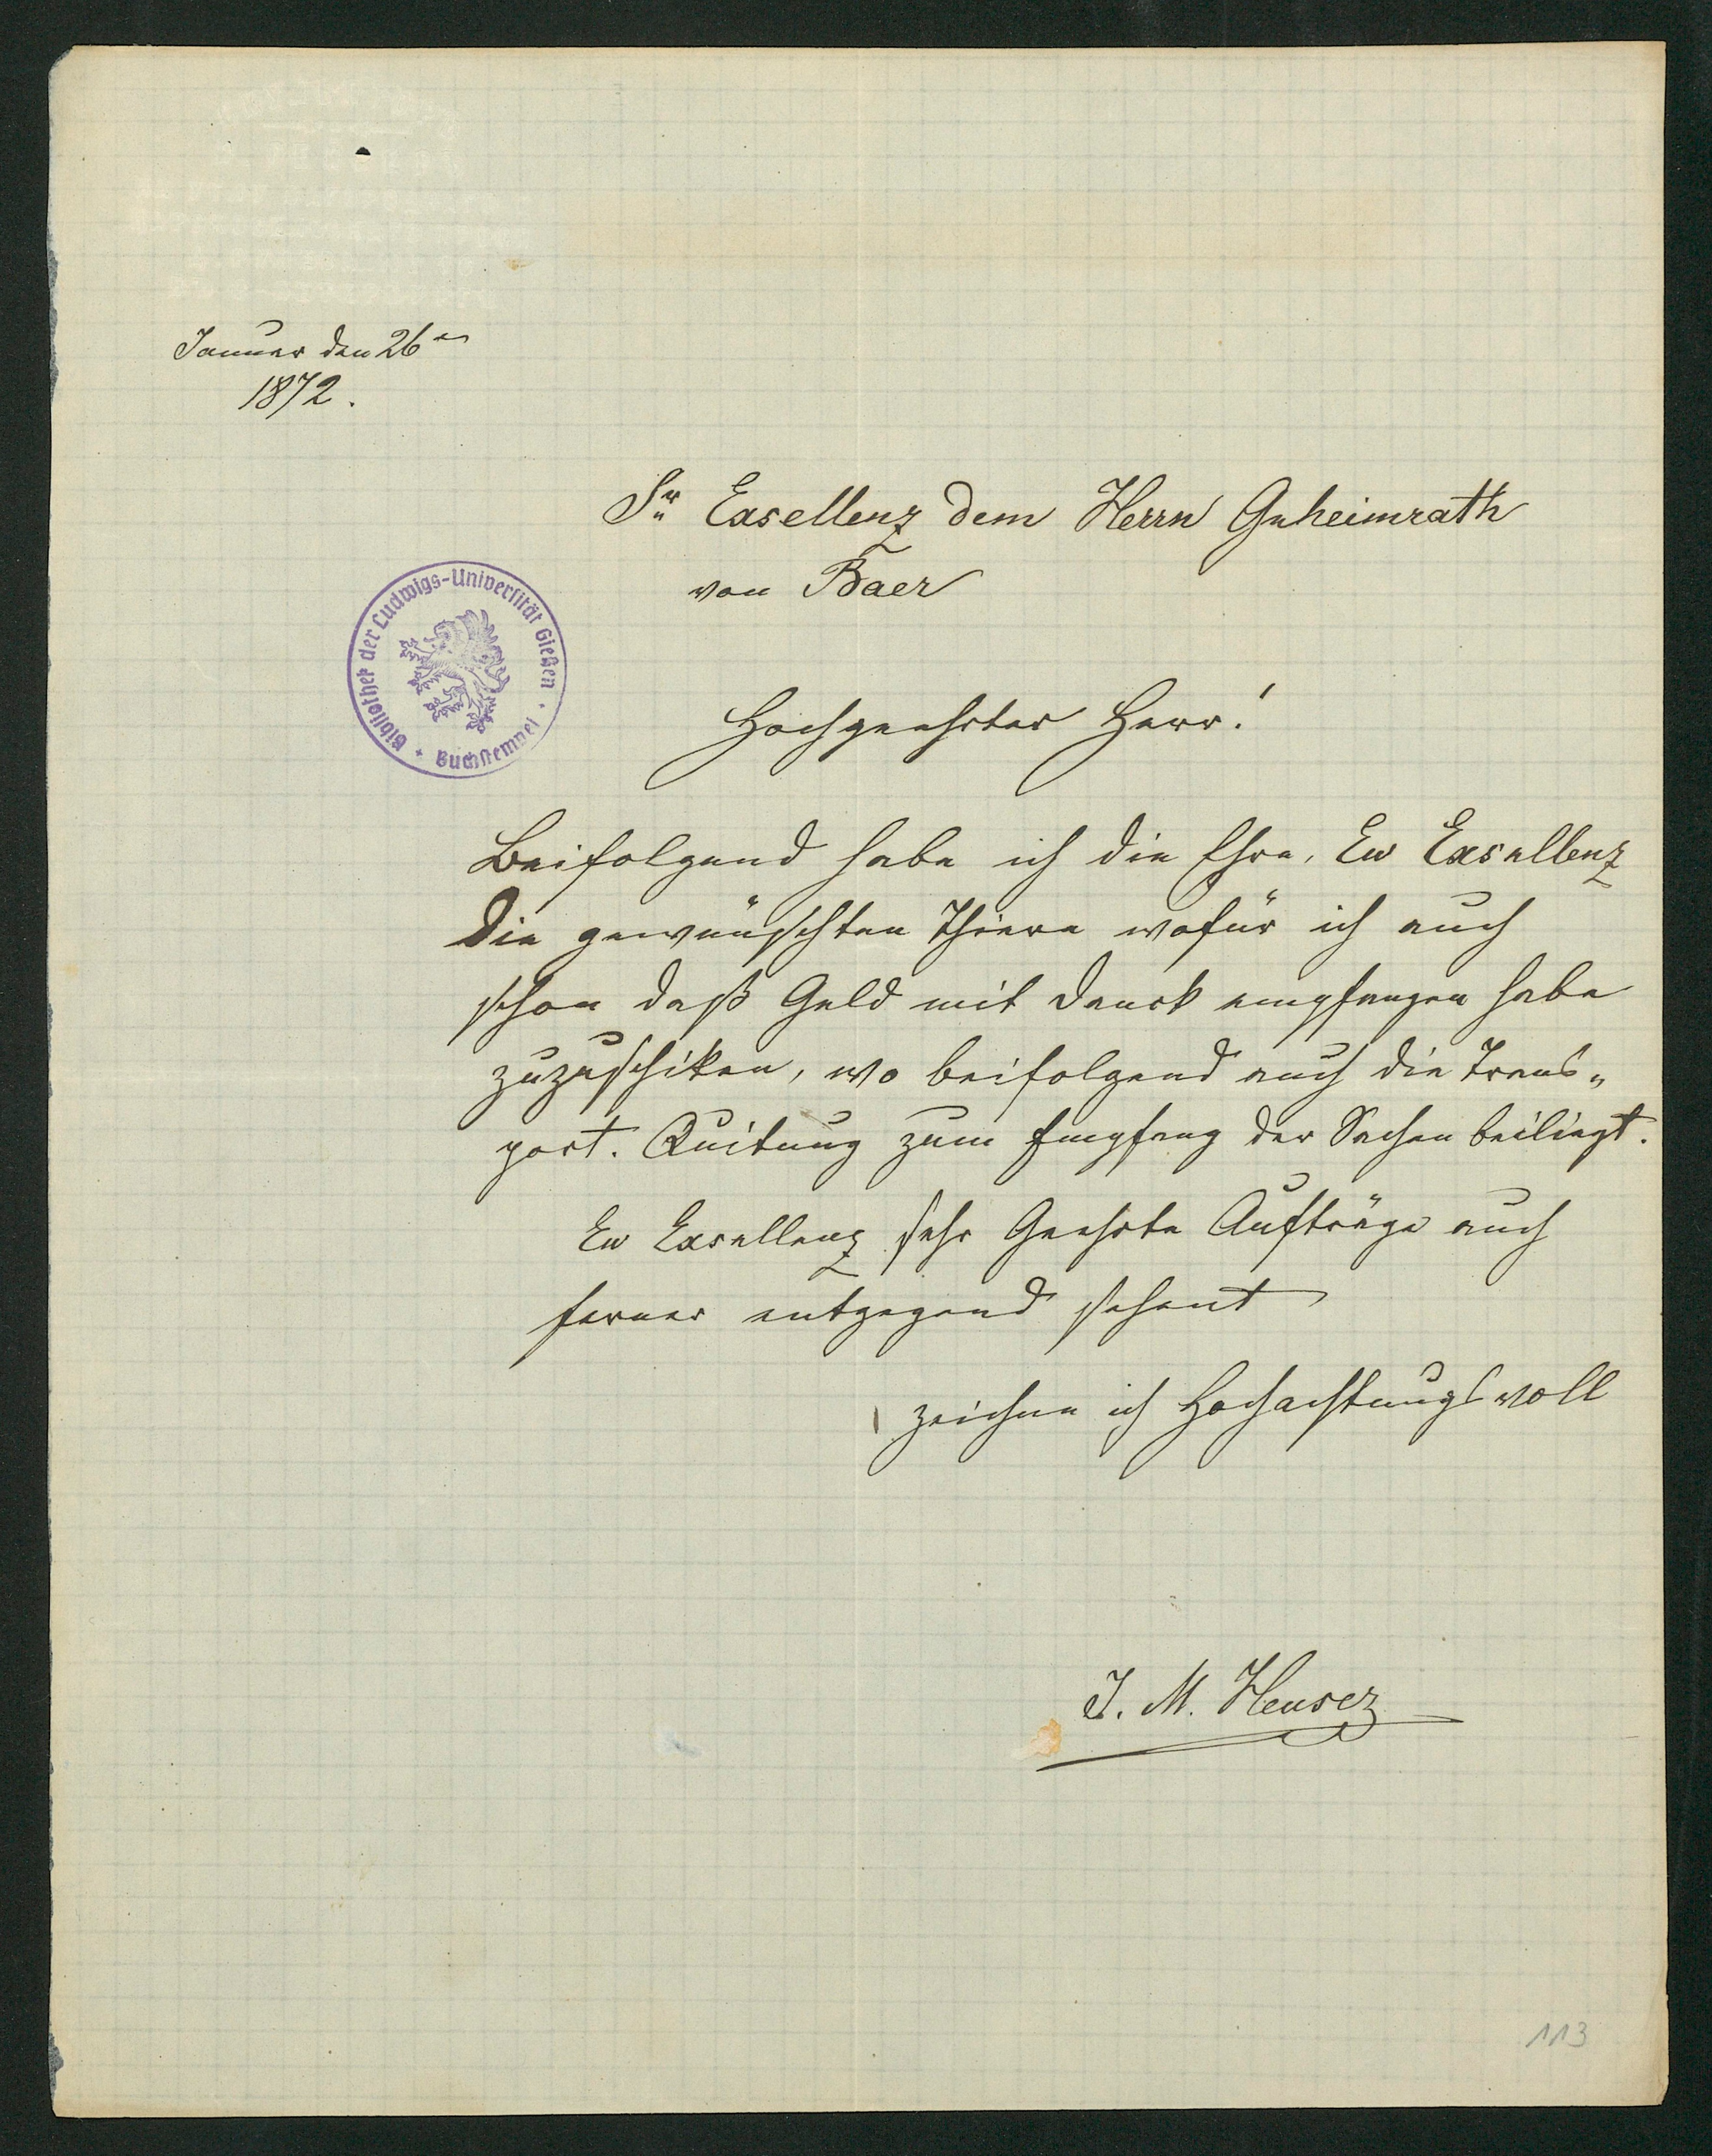 Januar den 26ten
1872.
Sr Exsellenz dem Herrn Geheimrath
von Baer
Bibliothek der Ludwigs-Universität Gießen · Buchstempel ·
Hochgeehrter Herr!
Beifolgend habe ich die Ehre, Ew Exsellenz
Die gewünschten Thiere wofür ich auch
schon daß Geld mit Danck empfangen habe
zuzuschiken, wo beifolgend auch die Trans„
port. Quitung zum Empfang der Sachen beiliegt.
Ew Exsellenz sehr Geehrte Aufträge auch
ferner entgegend sehent
zeichne ich Hochachtungsvoll
J. M. Heuser
113